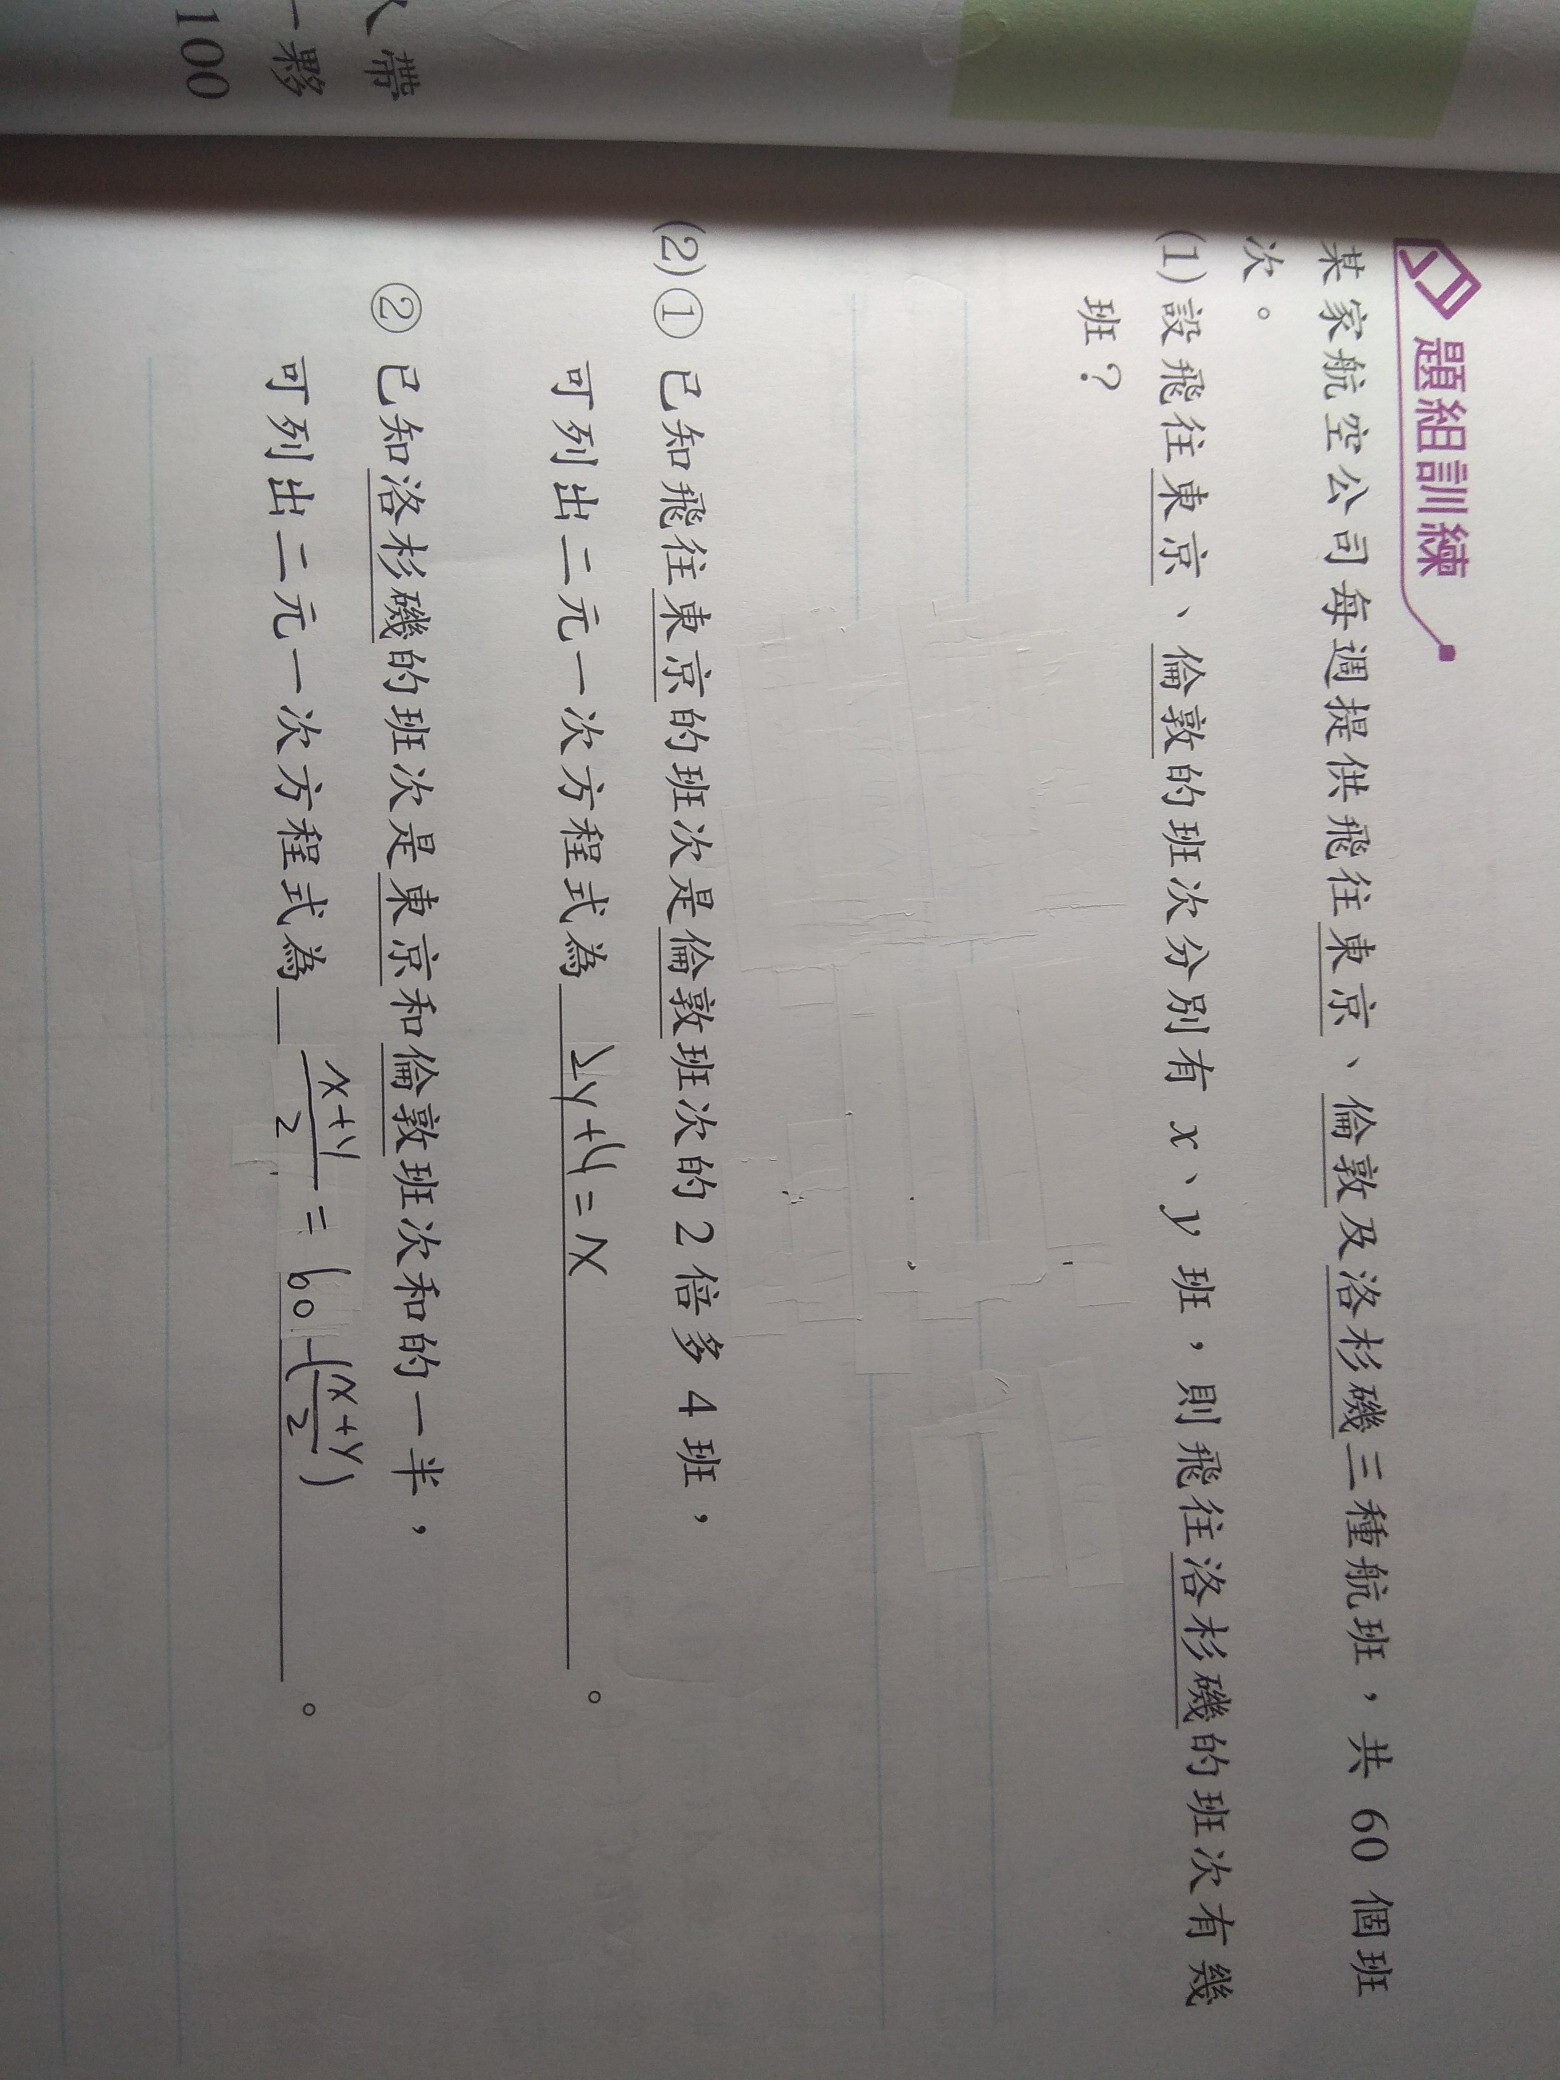 人帶
一夥
100
題組訓練
某家航空公司每週提供飛往東京、倫敦及洛杉磯三種航班，共 60 個班
次。
(1) 設飛往東京、倫敦的班次分別有 x、y 班，則飛往洛杉磯的班次有幾
班？
(2) ① 已知飛往東京的班次是倫敦班次的 2 倍多 4 班，
可列出二元一次方程式為 2y+4=x 。
② 已知洛杉磯的班次是東京和倫敦班次和的一半，
可列出二元一次方程式為 x+y/2 = 60-(x+y/2) 。